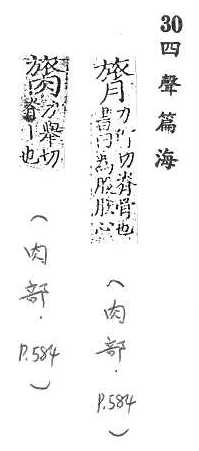 30 四聲篇海
膂 力切脊骨也
書為股肱心
(肉部.P.584)
力舉切
脊丨也
(肉部.P.584)